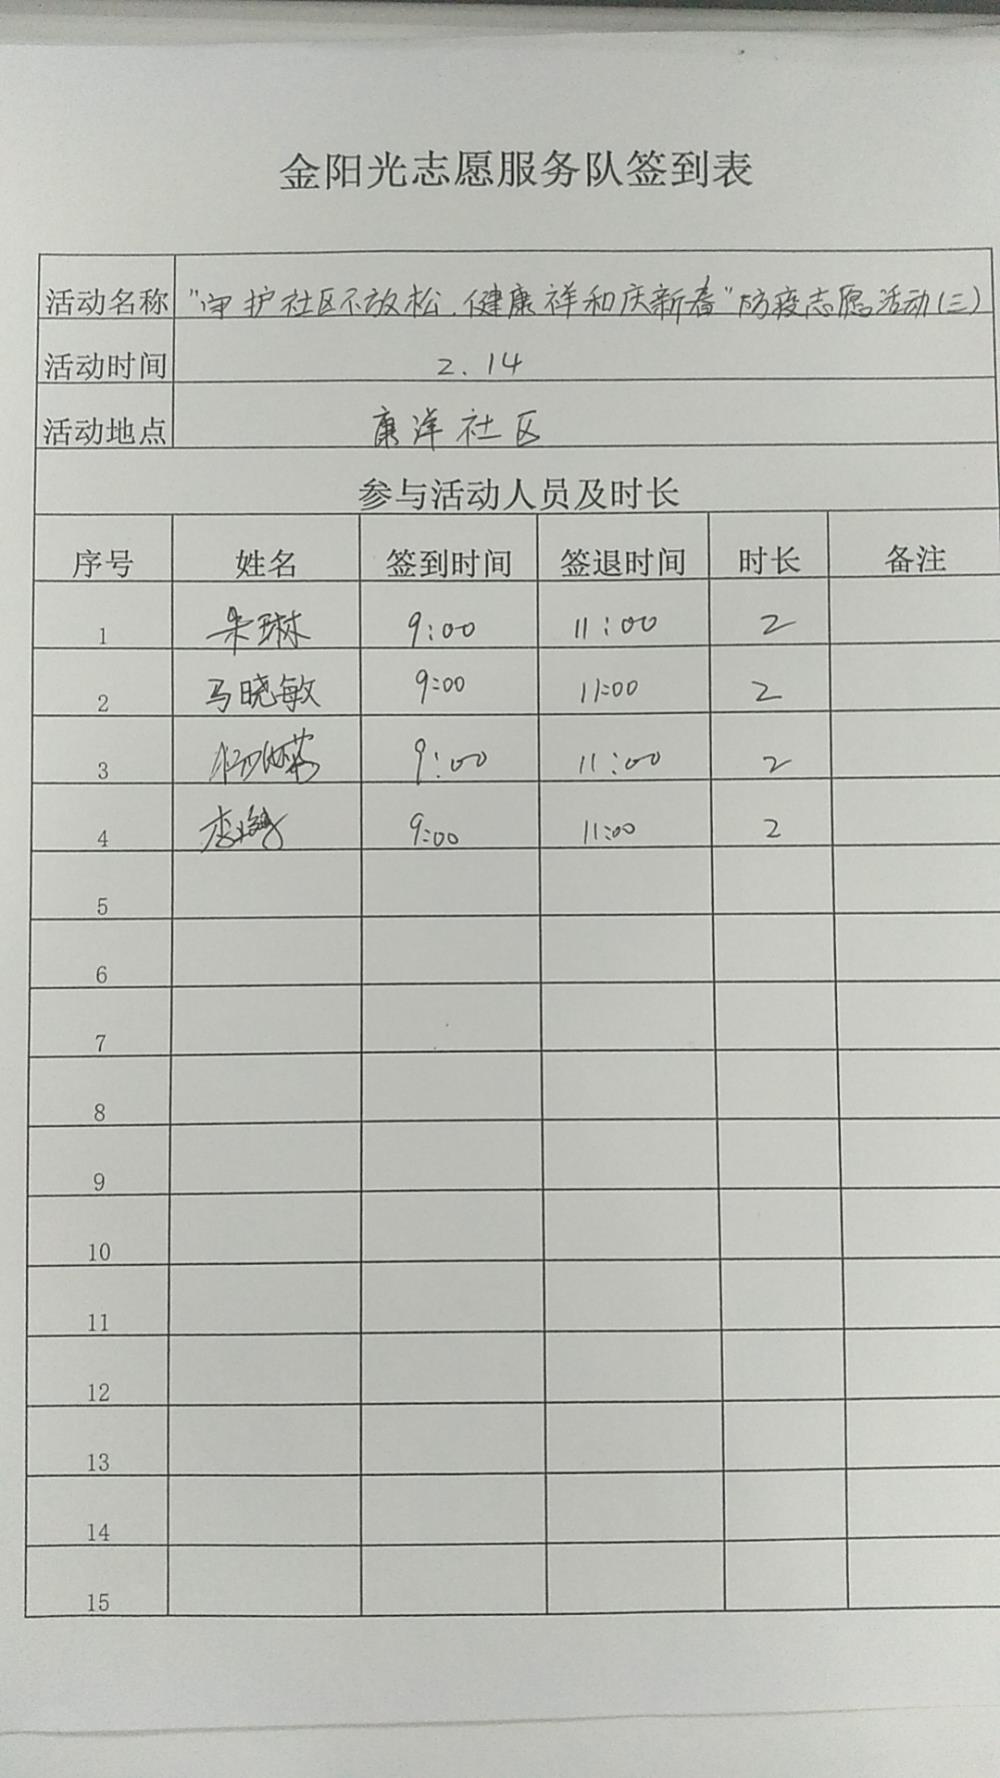 金阳光志愿服务队签到表
活动名称 "守护社区不放松,健康祥和庆新春"防疫志愿活动(三)
活动时间 2.14
活动地点 康洋社区
参与活动人员及时长
序号 姓名 签到时间 签退时间 时长 备注
1 朱琳 9:00 11:00 2
2 马晓敏 9:00 11:00 2
3 9:00 11:00 2
4 9:00 11:00 2
5
6
7
8
9
10
11
12
13
14
15